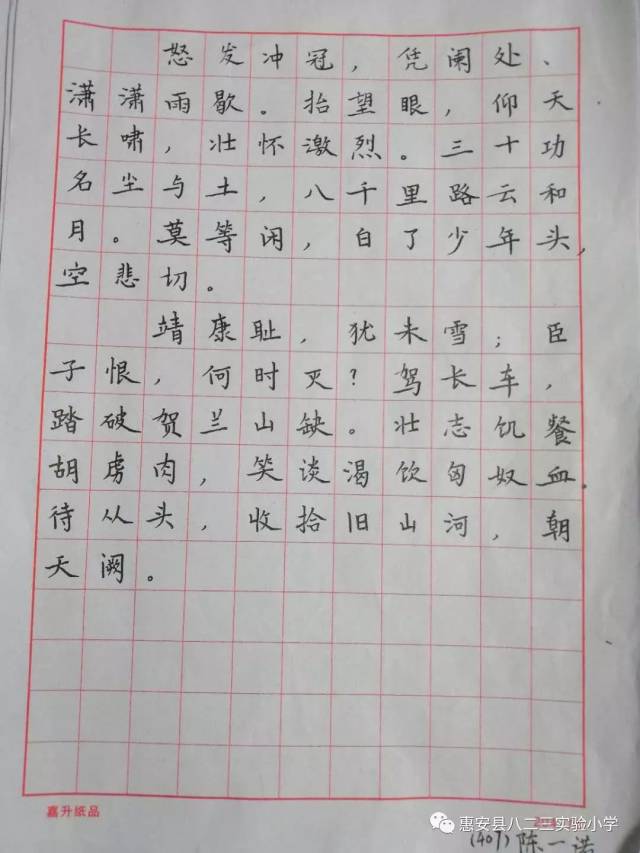 怒发冲冠，凭阑处、
潇潇雨歇。抬望眼，仰天
长啸，壮怀激烈。三十功
名尘与土，八千里路云和
月。莫等闲，白了少年头，
空悲切。
靖康耻，犹未雪；臣
子恨，何时灭？驾长车，
踏破贺兰山缺。壮志饥餐
胡虏肉，笑谈渴饮匈奴血.
待从头，收拾旧山河，朝
天阙。
嘉升纸品
惠安县八二三实验小学
(407) 陈一诺